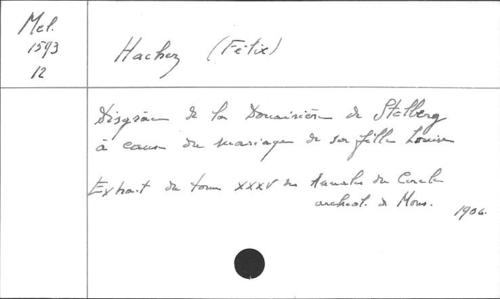 Mel.
1593
12
Hachez (Félix)
Disgrâce de la Douairière de Stolberg
à cause du mariage de sa fille Louise
Extrait du tome XXXV des Annales du Cercle
archéol. de Mons.
1906.